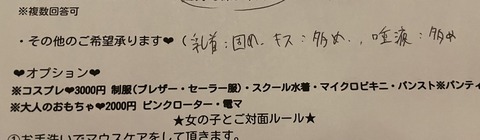 ※複数回答可
・その他のご希望承ります❤（乳首：固め、キス：多め、唾液：多め
❤オプション❤
※コスプレ❤3000円 制服(ブレザー・セーラー服)・スクール水着・マイクロビキニ・パンスト※パンティ
※大人のおもちゃ❤2000円 ピンクローター・電マ
★女の子とご対面ルール★
①お手洗いでマウスケアをして頂きます。